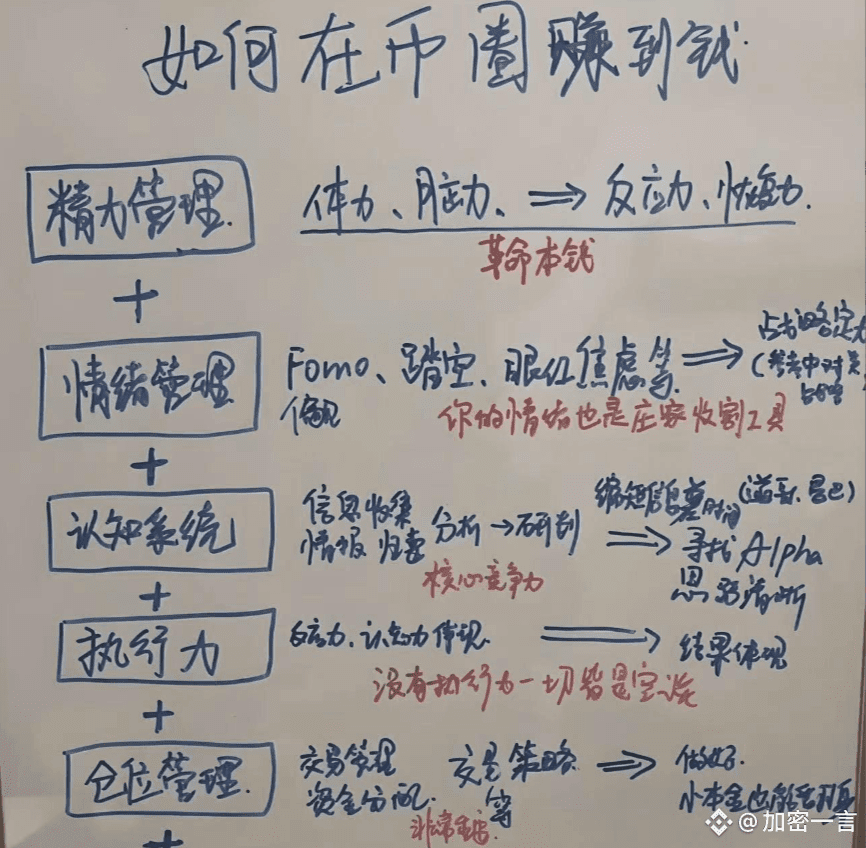 如何在币圈赚到钱
精力管理. 体力、脑力、⇒ 反应力、恢复力.
革命本钱
+
情绪管理 Fomo、踏空、眼红焦虑等 ⇒
偏见
你的情绪也是庄家收割工具
+
认知系统
信息收集
情报归类 分析→研判 ⇒ 缩短信息差时间
寻找 Alpha
思路清晰
核心竞争力
+
执行力 反应力、认知力体现. ⇒ 结果体现
没有执行力一切皆是空谈
+
仓位管理. 交易管理 交易策略 ⇒ 做好.
资金分配. 等 小本金也能
非常重要.
+
@加密一言